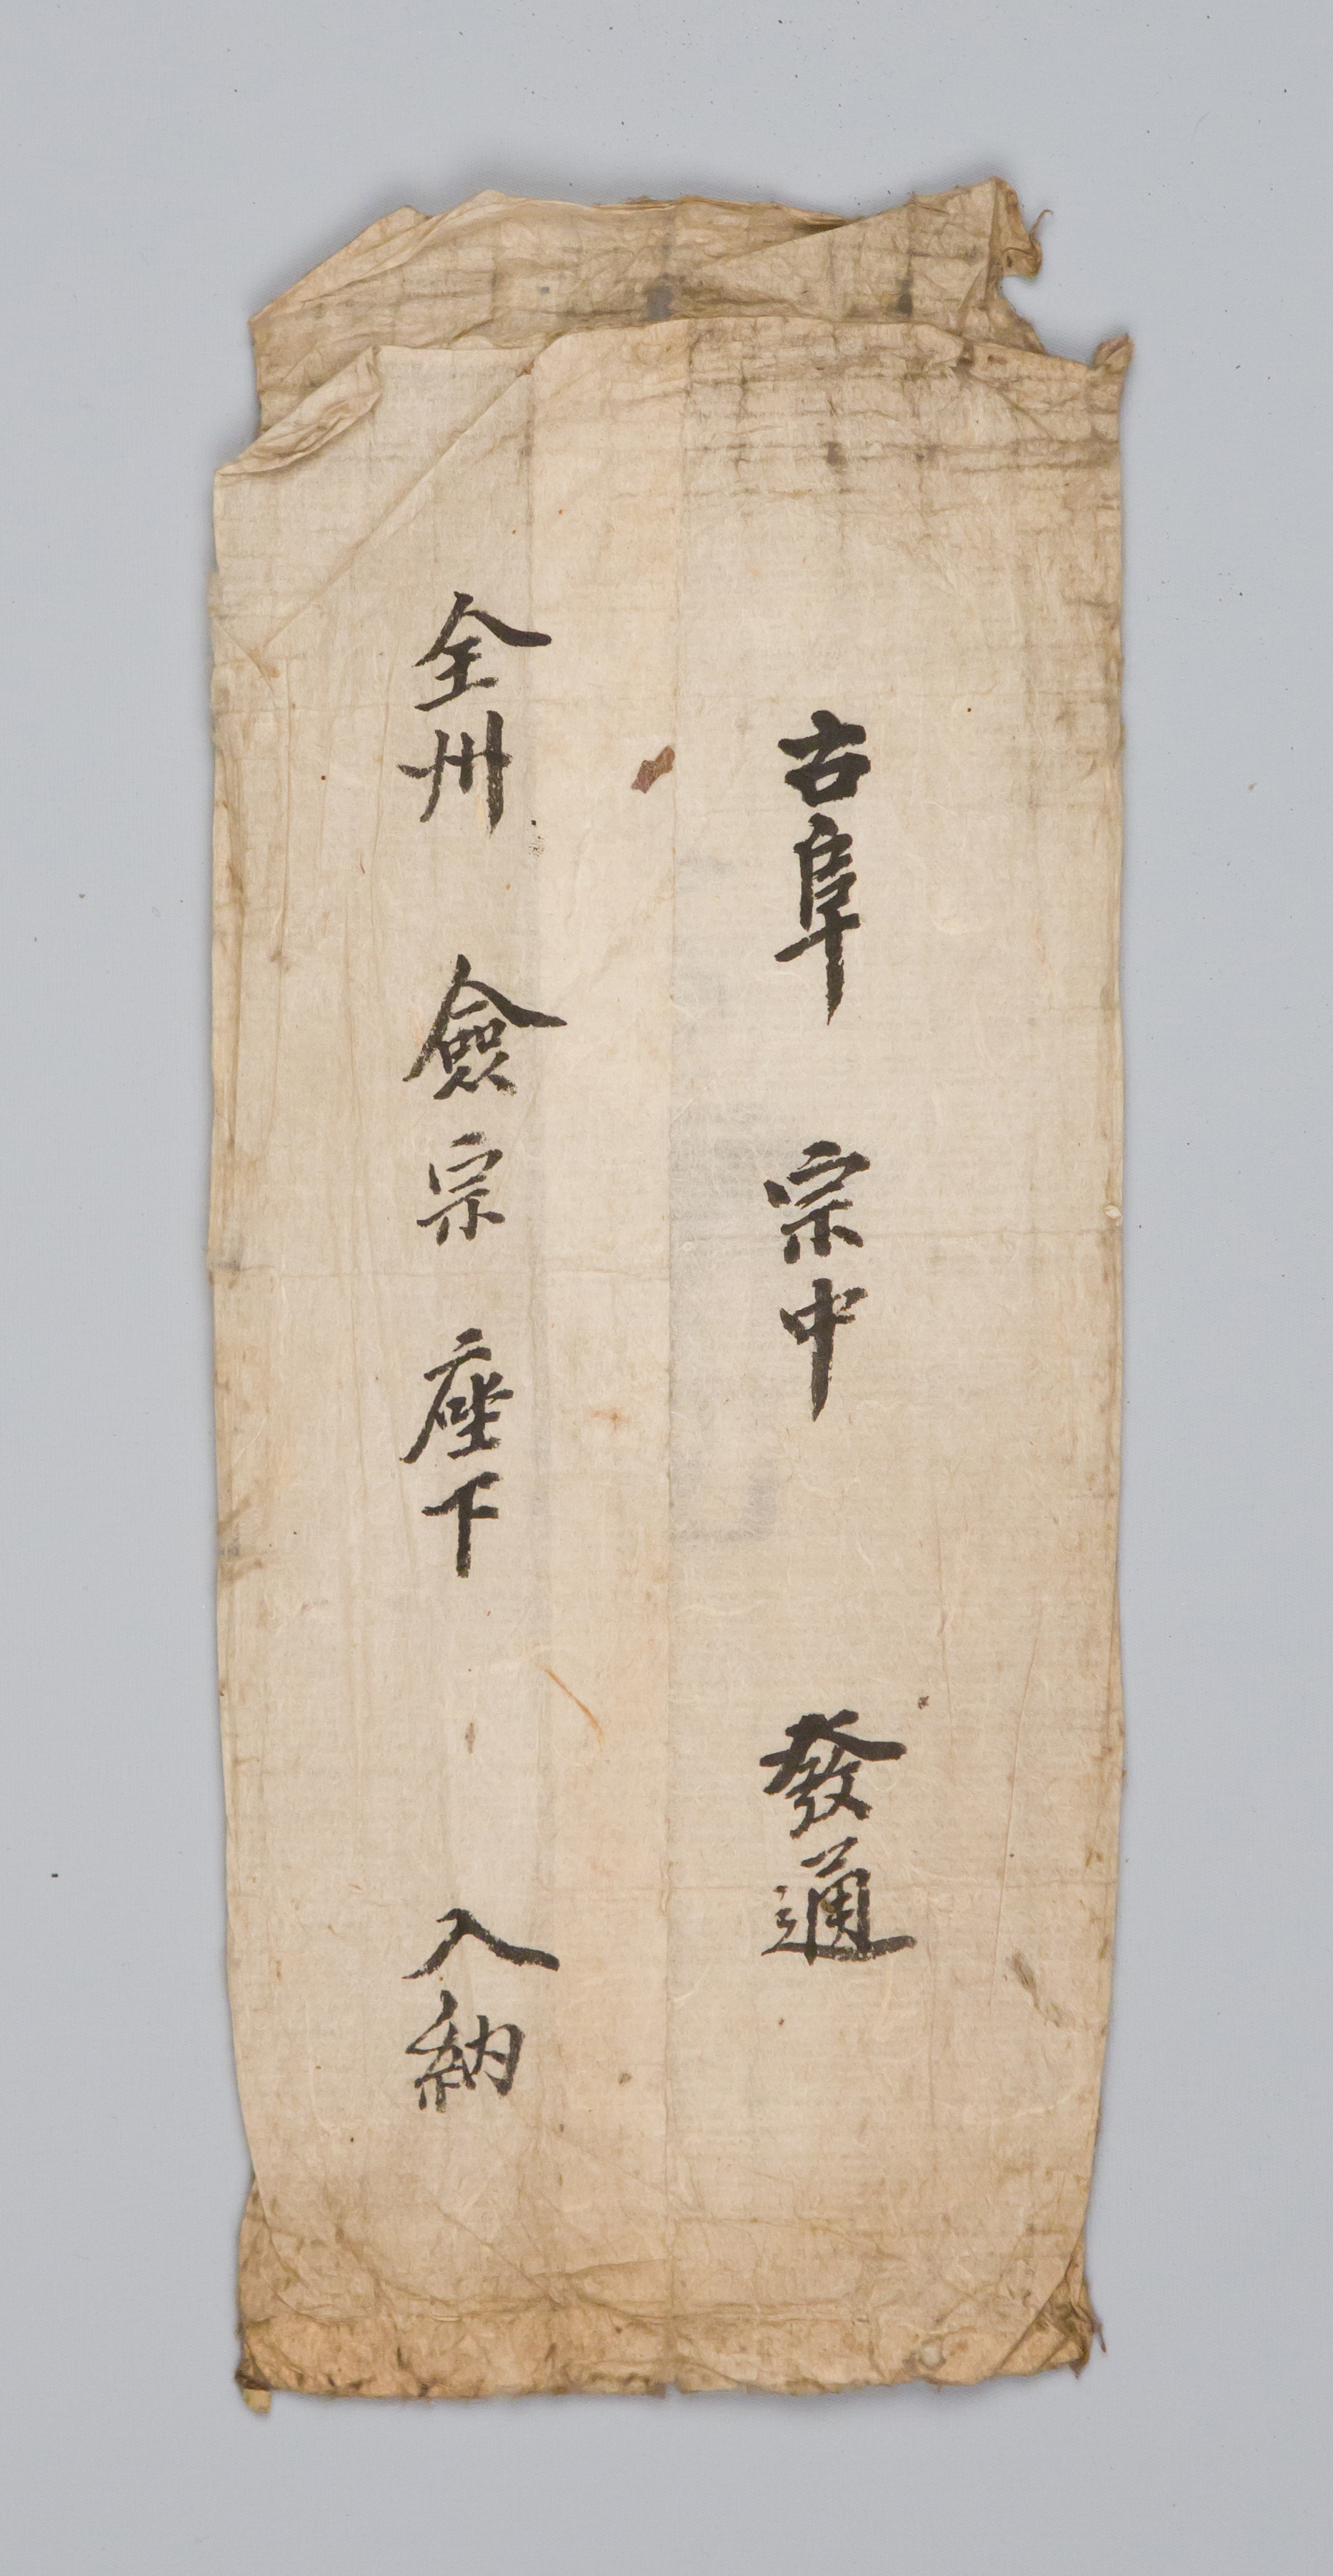 古阜 宗中 發通
全州 僉宗 座下 入納